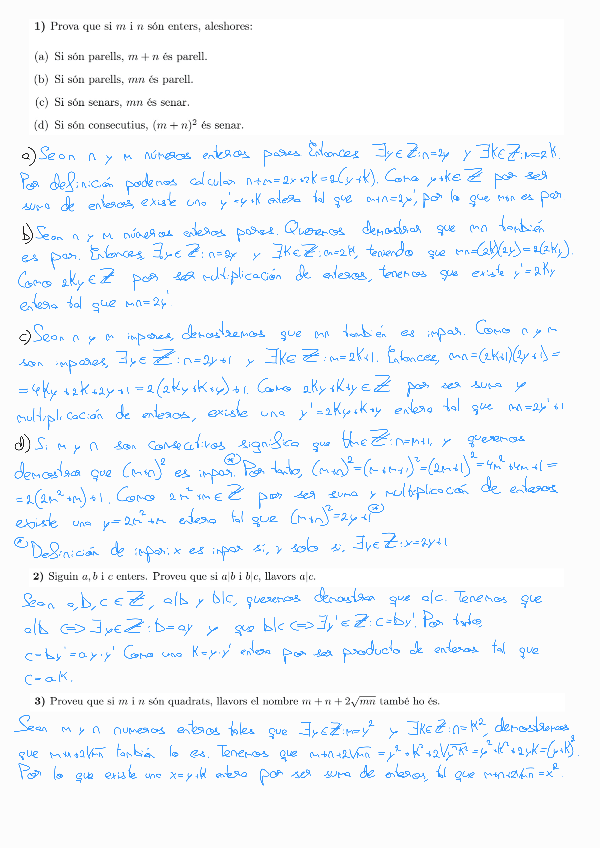 1) Prova que si m i n són enters, aleshores:
(a) Si són parells, m + n és parell.
(b) Si són parells, mn és parell.
(c) Si són senars, mn és senar.
(d) Si són consecutius, (m + n)² és senar.
a) Sean n y m números enteros pares. Entonces ∃y∈ℤ:n=2y y ∃K∈ℤ:m=2K.
Por definición podemos calcular n+m=2y+2K=2(y+K). Como y+K∈ℤ por ser
suma de enteros, existe una y'=y+K entera tal que m+n=2y', por lo que m+n es par
b) Sean n y m números enteros pares. Queremos demostrar que mn también
es par. Entonces, ∃y∈ℤ:n=2y y ∃K∈ℤ:m=2K, teniendo que mn=(2K)(2y)=2(2Ky).
Como 2Ky∈ℤ por ser multiplicación de enteros, tenemos que existe y'=2Ky
entera tal que mn=2y'
c) Sean n y m impares, demostremos que mn también es impar. Como n y m
son impares, ∃y∈ℤ:n=2y+1 y ∃K∈ℤ:m=2K+1. Entonces, mn=(2K+1)(2y+1)=
=4Ky+2K+2y+1=2(2Ky+K+y)+1. Como 2Ky+K+y∈ℤ por ser suma y
multiplicación de enteros, existe una y'=2Ky+K+y entera tal que mn=2y'+1
d) Si m y n son consecutivos significa que ∀m∈ℤ:n=m+1, y queremos
demostrar que (m+n)² es impar.(*) Por tanto, (m+n)²=(m+m+1)²=(2m+1)²=4m²+4m+1=
=2(2m²+m)+1. Como 2m²+m∈ℤ por ser suma y multiplicación de enteros
existe una y=2m²+m entera tal que (m+n)²=2y+1(*)
(*) Definición de impar: x es impar si, y solo si, ∃y∈ℤ:x=2y+1
2) Siguin a, b i c enters. Proveu que si a|b i b|c, llavors a|c.
Sean a,b,c∈ℤ, a|b y b|c, queremos demostrar que a|c. Tenemos que
a|b ⟺ ∃y∈ℤ:b=ay y que b|c ⟺ ∃y'∈ℤ:c=by'. Por tanto,
c=by'=ay·y' Como una K=y·y' entera por ser producto de enteros tal que
c=aK.
3) Proveu que si m i n són quadrats, llavors el nombre m + n + 2√mn també ho és.
Sean m y n numeros enteros tales que ∃y∈ℤ:m=y² y ∃K∈ℤ:n=K², demostremos
que m+n+2√mn también lo es. Tenemos que m+n+2√mn=y²+K²+2√y²K²=y²+K²+2yK=(y+K)².
Por lo que existe una x=y+K entera por ser suma de enteros, tal que m+n+2√mn=x².